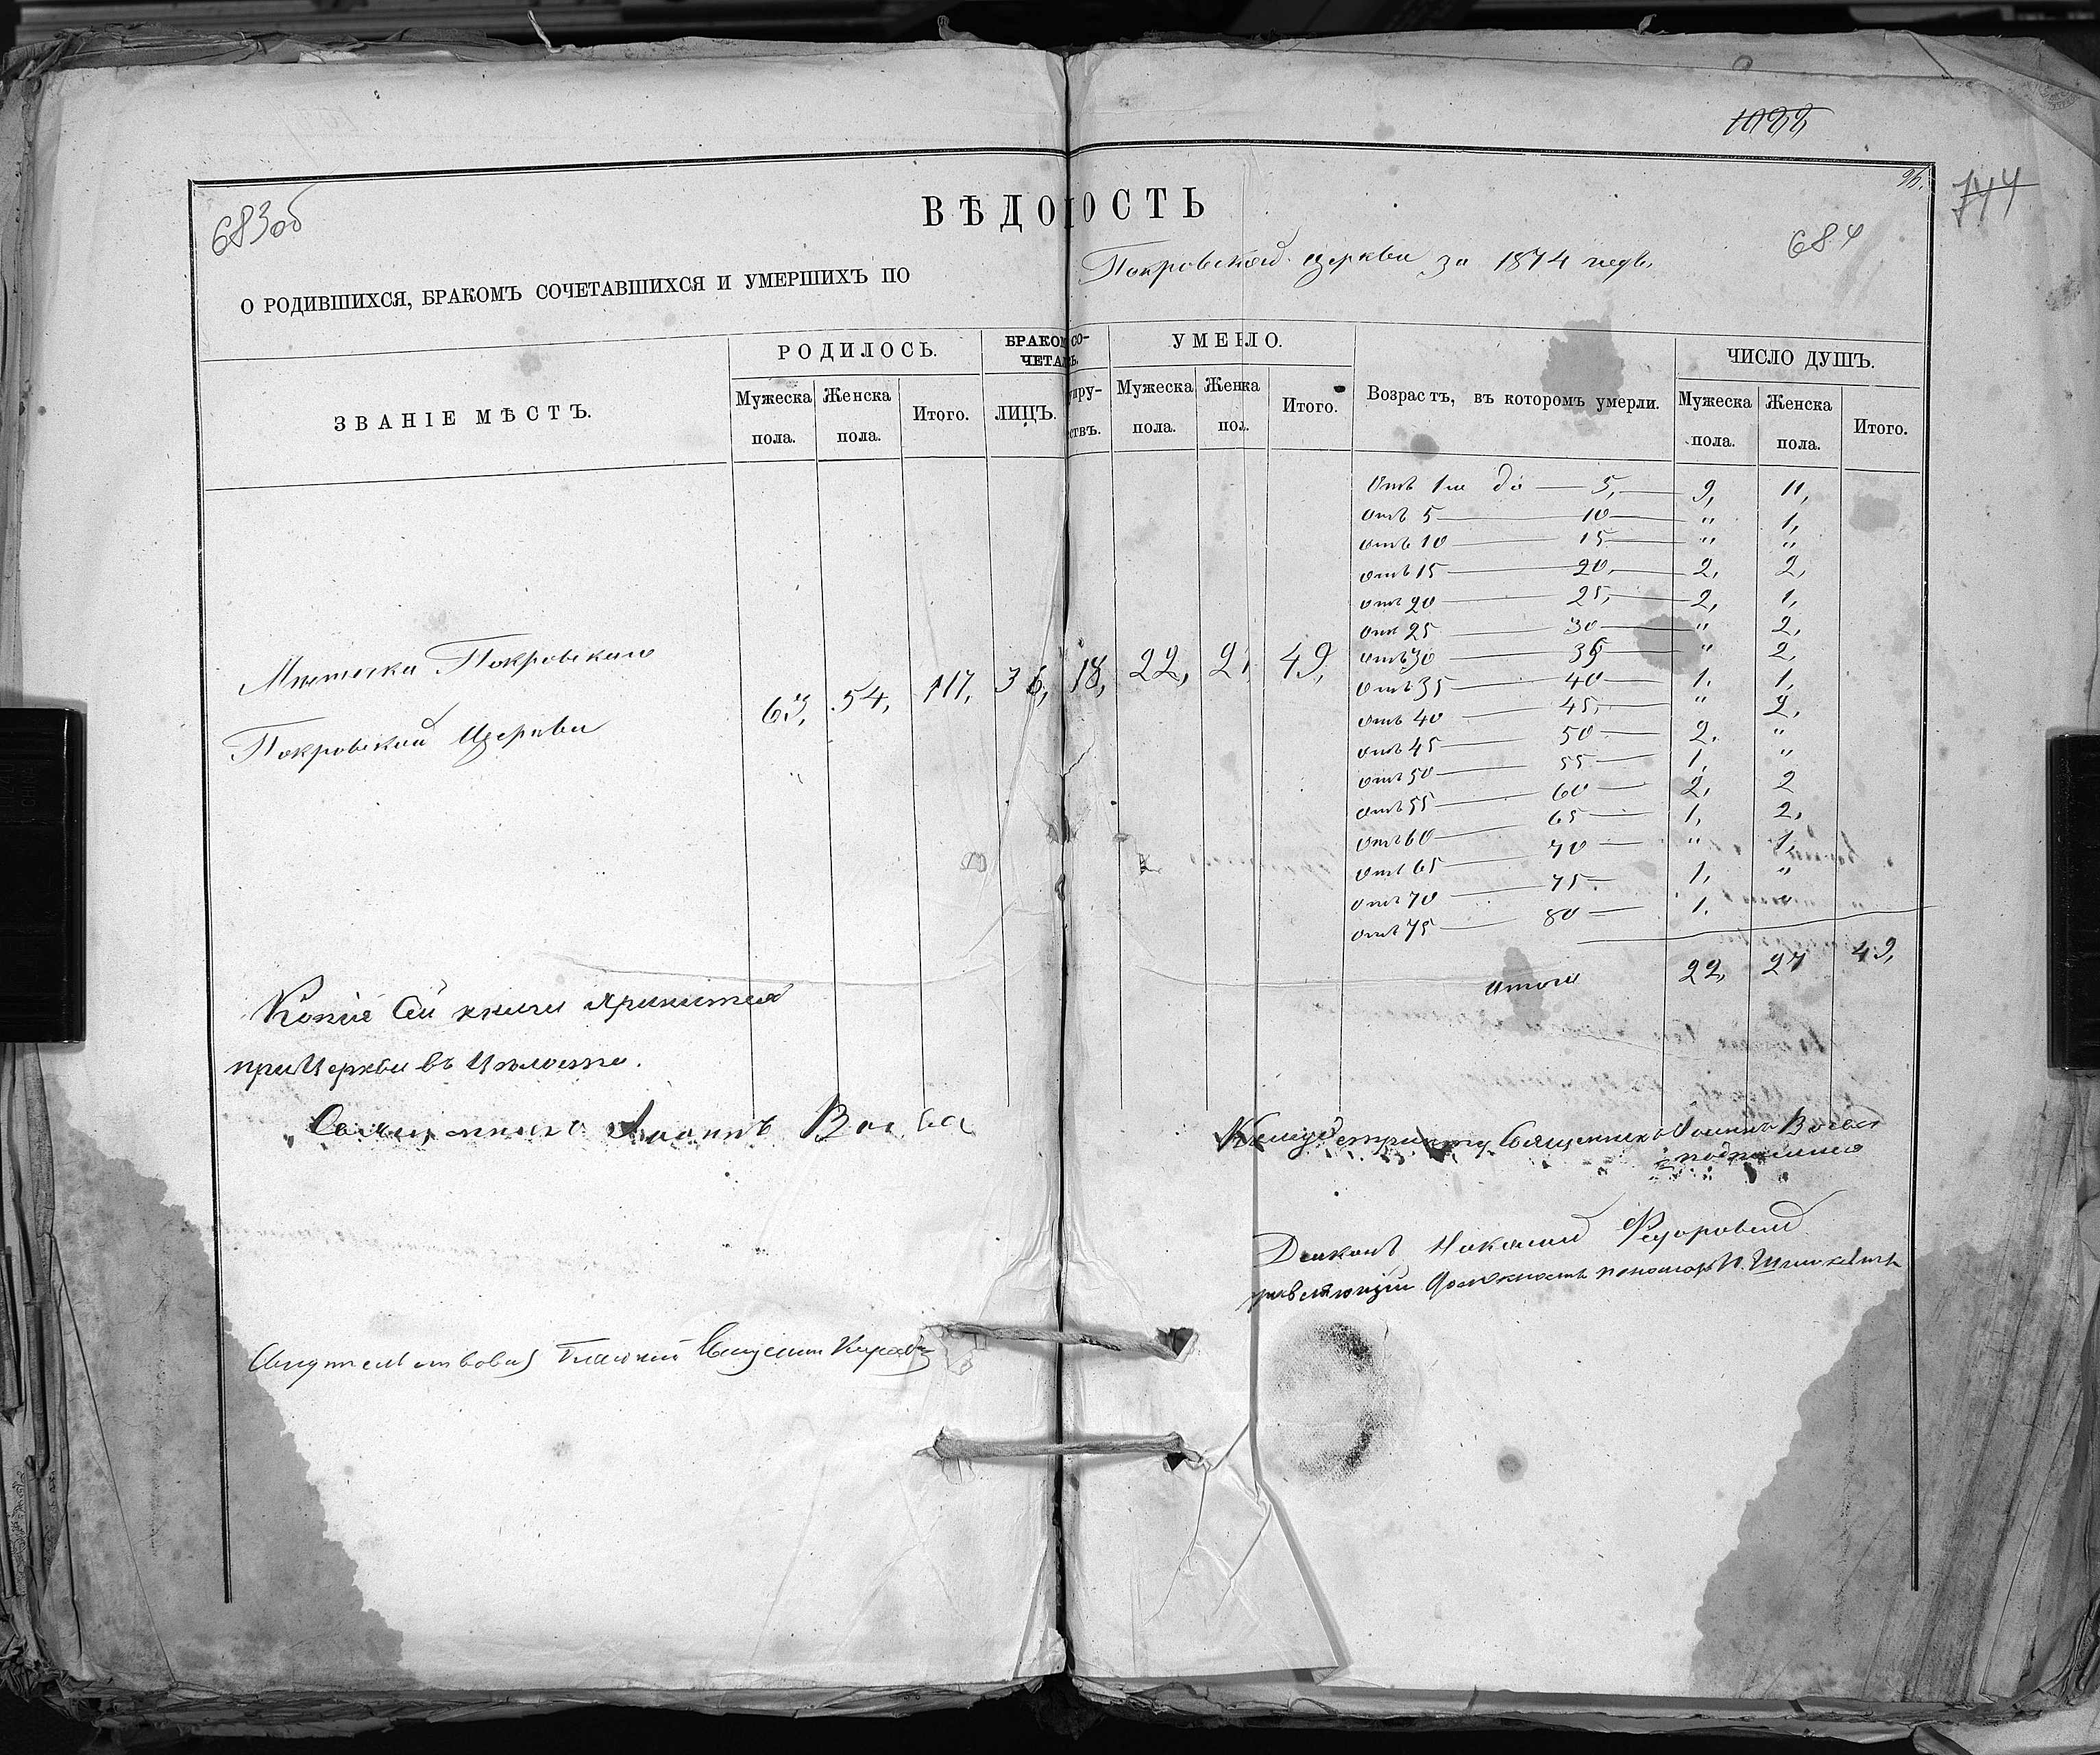 1022
96.
744
683об
ВѢДОМОСТЬ
684
О РОДИВШИХСЯ, БРАКОМЪ СОЧЕТАВШИХСЯ И УМЕРШИХЪ ПО Покровской церкви за 1874 годъ,
ЗВАНІЕ МѢСТЪ. РОДИЛОСЬ. БРАКОМ СО- УМЕРЛО. Возрастъ, въ которомъ умерли. ЧИСЛО ДУШЪ.
ЧЕТАЛ Ъ.
Мужеска Женска Итого. ЛИЦЪ. упру- Мужеска Женска Итого. Мужеска Женска Итого.
пола. пола. ствъ. пола. пол. пола. пола.
Отъ 1го до 5, 9, 11,
отъ 5 10 " 1,
отъ 10 15 " "
отъ 15 20, 2, 2,
отъ 20 25, 2, 1,
отъ 25 30 " 2,
отъ 30 35 " 2,
отъ 35 40 1. 1,
отъ 40 45, " 2,
отъ 45 50 2. "
отъ 50 55 1, "
отъ 55 60 2, 2
отъ 60 65 1, 2,
отъ 65 70 " 1,
отъ 70 75. 1, "
отъ 75 80 1. "
Итого 22, 27 49,
Мѣстечка Покровскаго
Покровской Церкви
63, 54, 117, 36, 18, 22, 27 49,
Копія сей книги хранится
при Церкви въ цѣлости.
Священникъ Іоаннъ Воева
Священникъ Іоаннъ Воева
подписался
Діаконъ Федоровский
должность пономаря